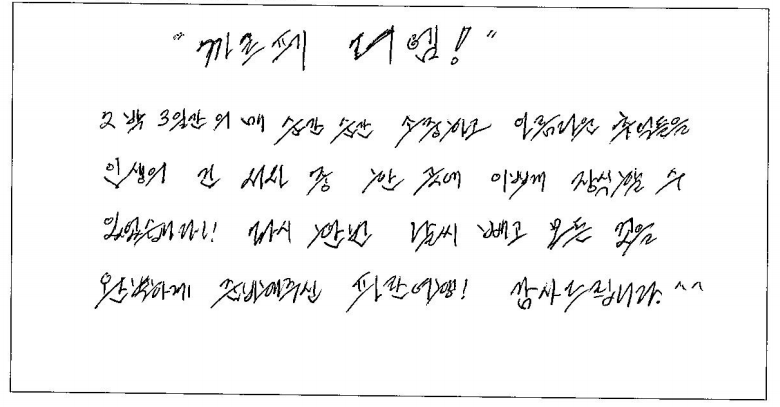 "까르페 디엠!"
2박 3일간의 매 순간 순간 소중하고 아름다운 추억들을
인생의 긴 서사 중 한 곳에 이쁘게 장식할 수
있었습니다! 다시 한번 날씨 빼고 모든 것을
완벽하게 준비해주신 파란여행! 감사드립니다. ^^